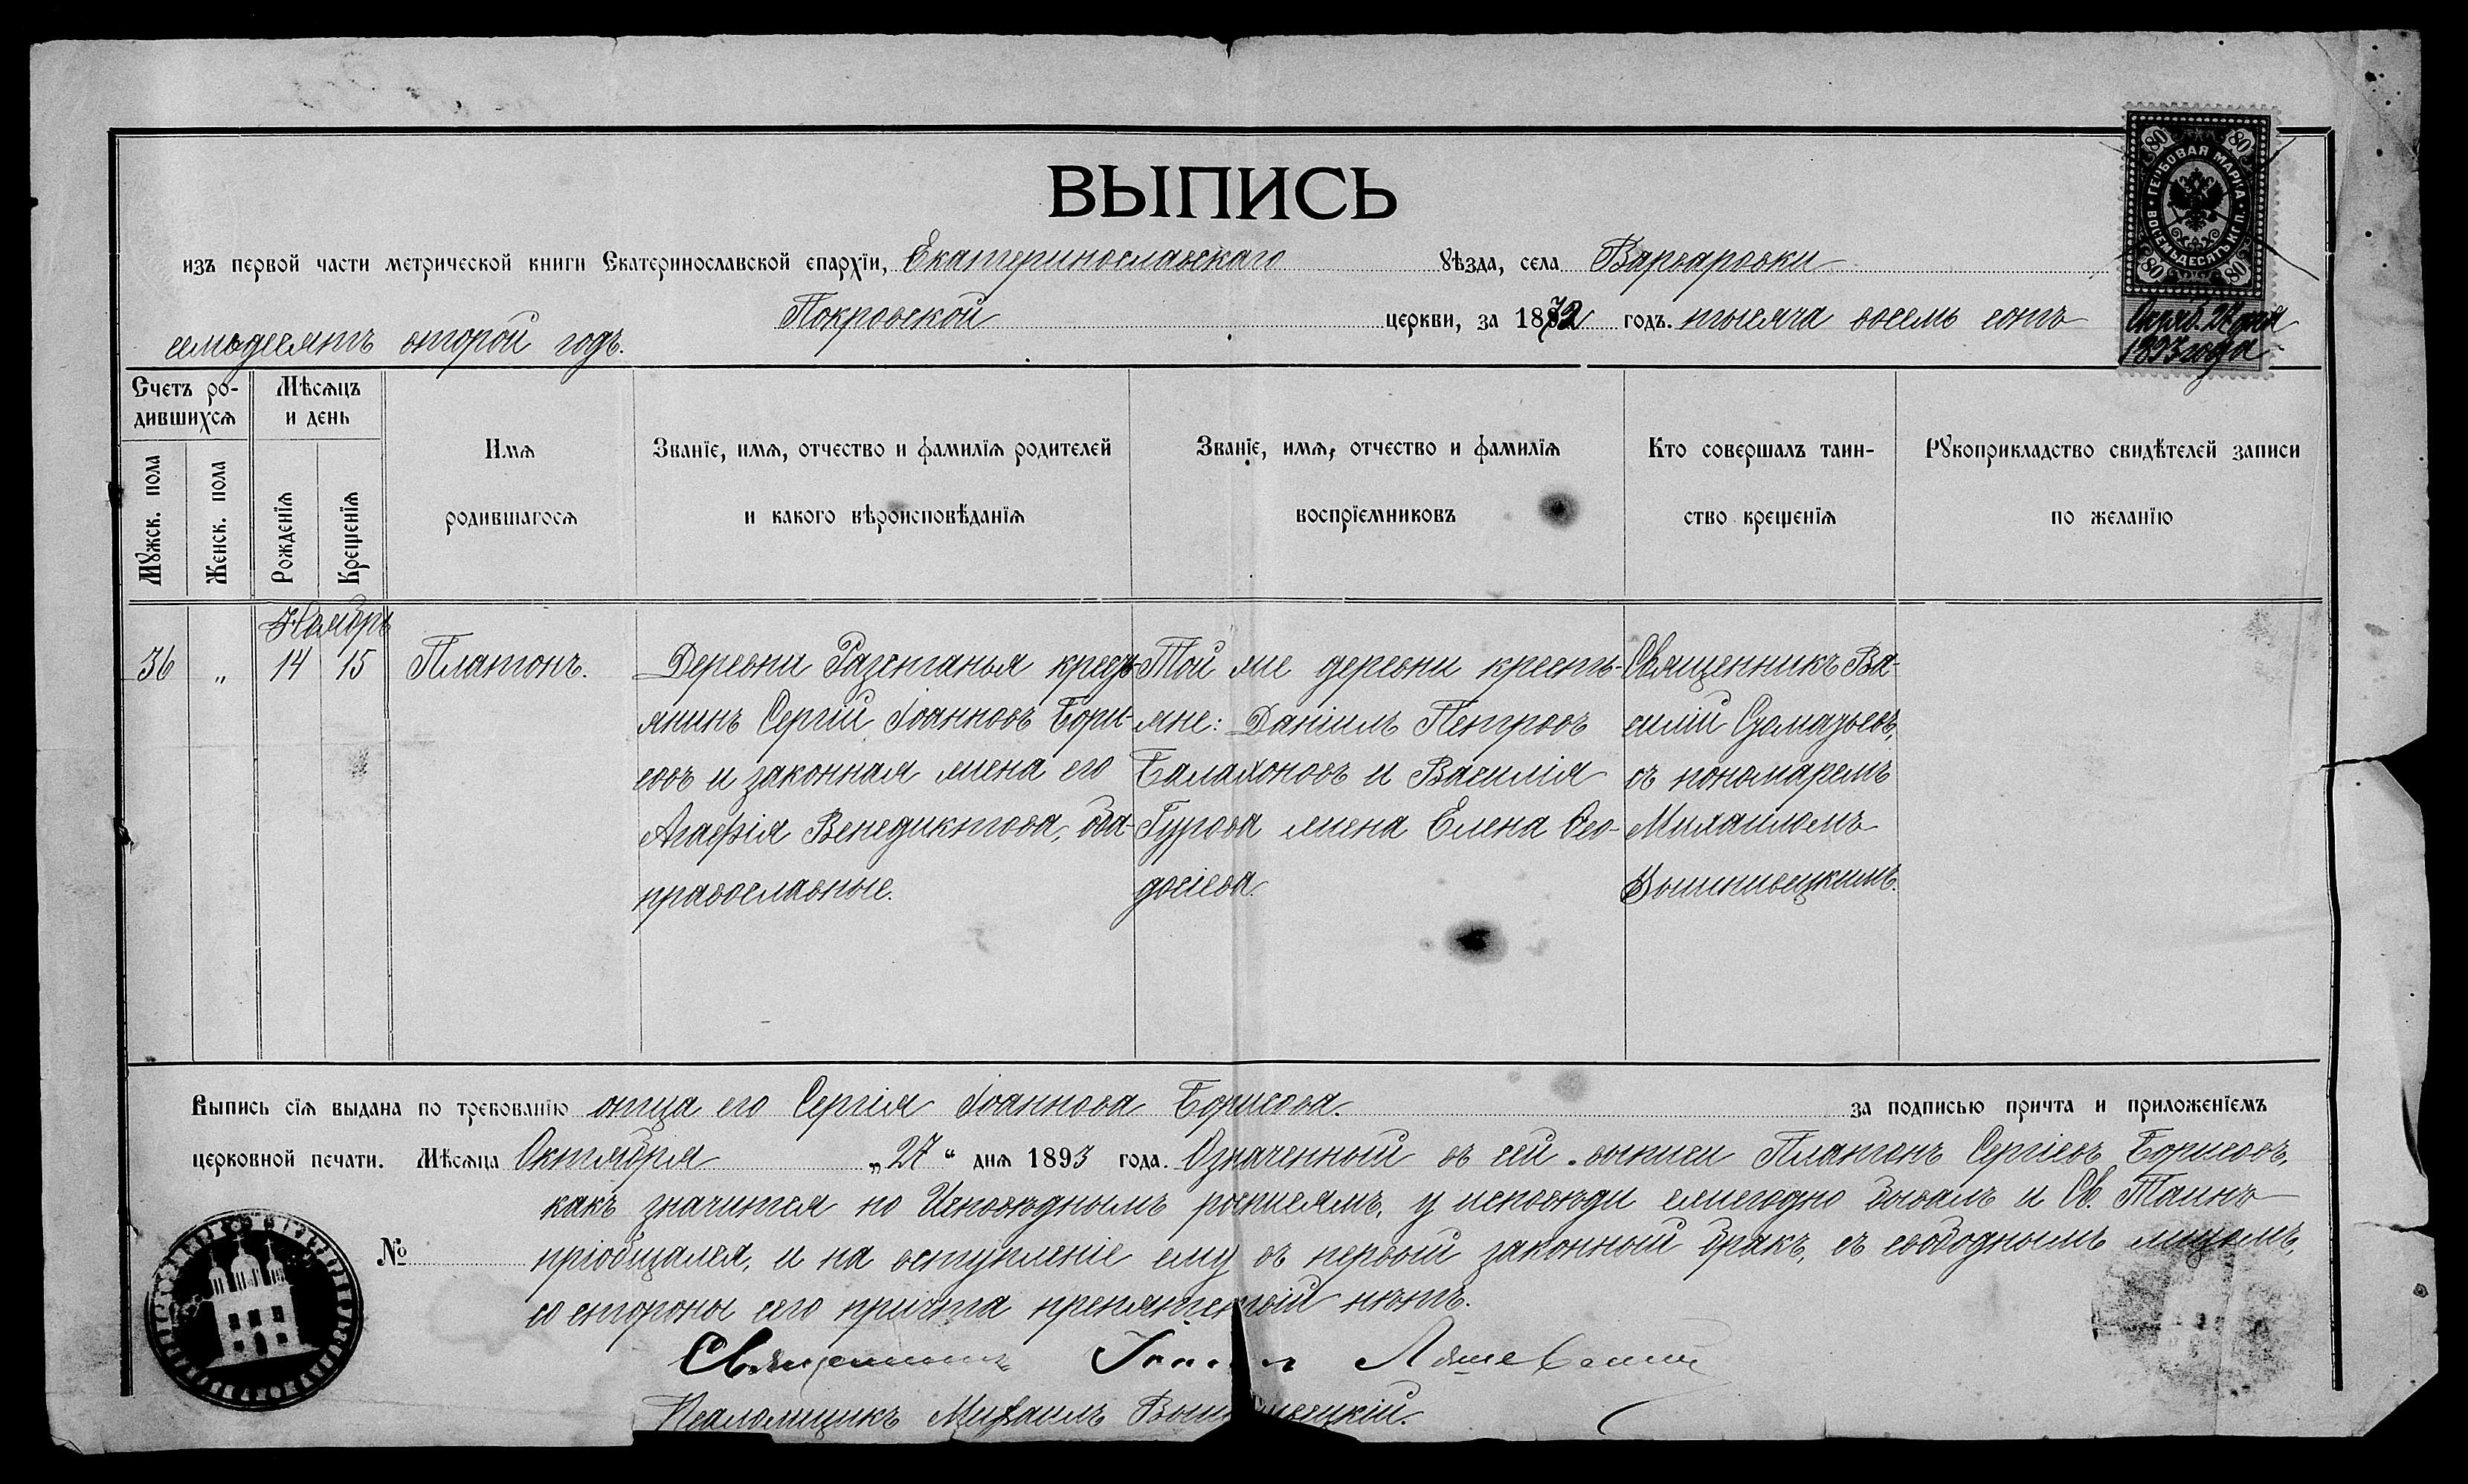 ВЫПИСЬ
изъ первой части метрической книги Екатеринославской епархїи, Екатеринославскаго уѣзда, села Варваровки
Покровской церкви, за 1872 годъ. тысяча восемь сотъ
семьдесятъ второй годъ.
ГЕРБОВАЯ МАРКА
ВОСЕМЬДЕСЯТЪ КОП.
80 80
80 80
Октяб. 27 дня
1893 года
Счетъ ро-
дившихся
Мѣсяцъ
и день
Мужск. пола
Женск. пола
Рожденїя
Крещенїя
Имя
родившагося
Званїе, имя, отчество и фамилїя родителей
и какого вѣроисповѣданїя
Званїе, имя, отчество и фамилїя
воспрїемниковъ
Кто совершалъ таин-
ство крещенїя
Рукоприкладство свидѣтелей записи
по желанїю
Ноябрь
36 „ 14 15 Платонъ.
Деревни крестъ-
янинъ Сергій Іоанновъ Бори-
совъ и законная жена его
Агафія Венедиктова, оба
православные.
Той же деревни крестъ-
яне: Даніилъ Петровъ
Балахоновъ и Василія
Гурова жена Елена Ѳео-
досіева.
Священникъ Ва-
силій
съ пономаремъ
Михаиломъ
Вышнивецкимъ.
Выпись сїя выдана по требованїю отца его Сергія Іоаннова Борисова. за подписью причта и приложенїемъ
церковной печати. Мѣсяца Октября „27“ дня 1893 года. Означенный въ сей выписи Платонъ Сергіевъ Борисовъ,
какъ значится по Исповѣднымъ росписямъ, у исповѣди ежегодно бывалъ и Св. Таинъ
№ пріобщался, и на вступленіе ему въ первый законный бракъ, съ свободнымъ лицомъ,
со стороны сего причта препятствій нѣтъ.
Священникъ
Псаломщикъ Михаилъ Вышнивецкій.